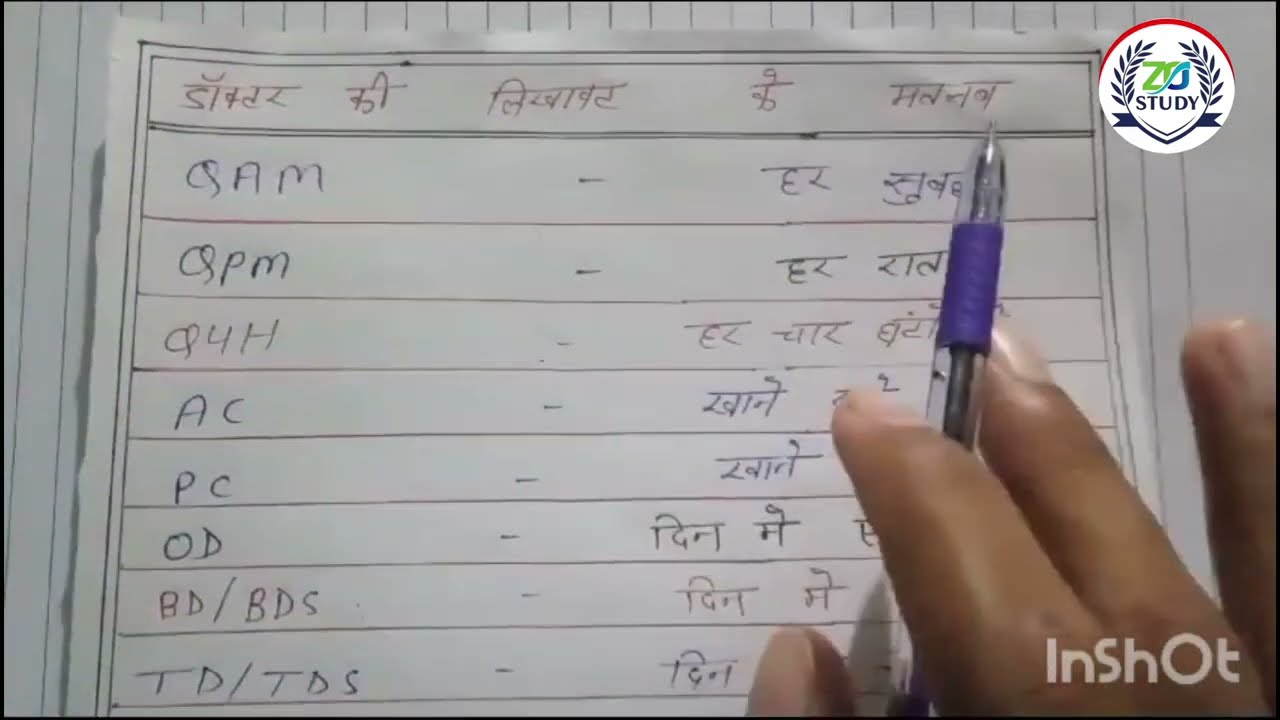 डॉक्टर की लिखावट के मतलब
ZS STUDY
QAM - हर सुबह
QPM - हर रात
Q4H - हर चार घंटे
AC - खाने
PC - खाने
OD - दिन मे
BD/BDS - दिन मे
TD/TDS - दिन
InShOt